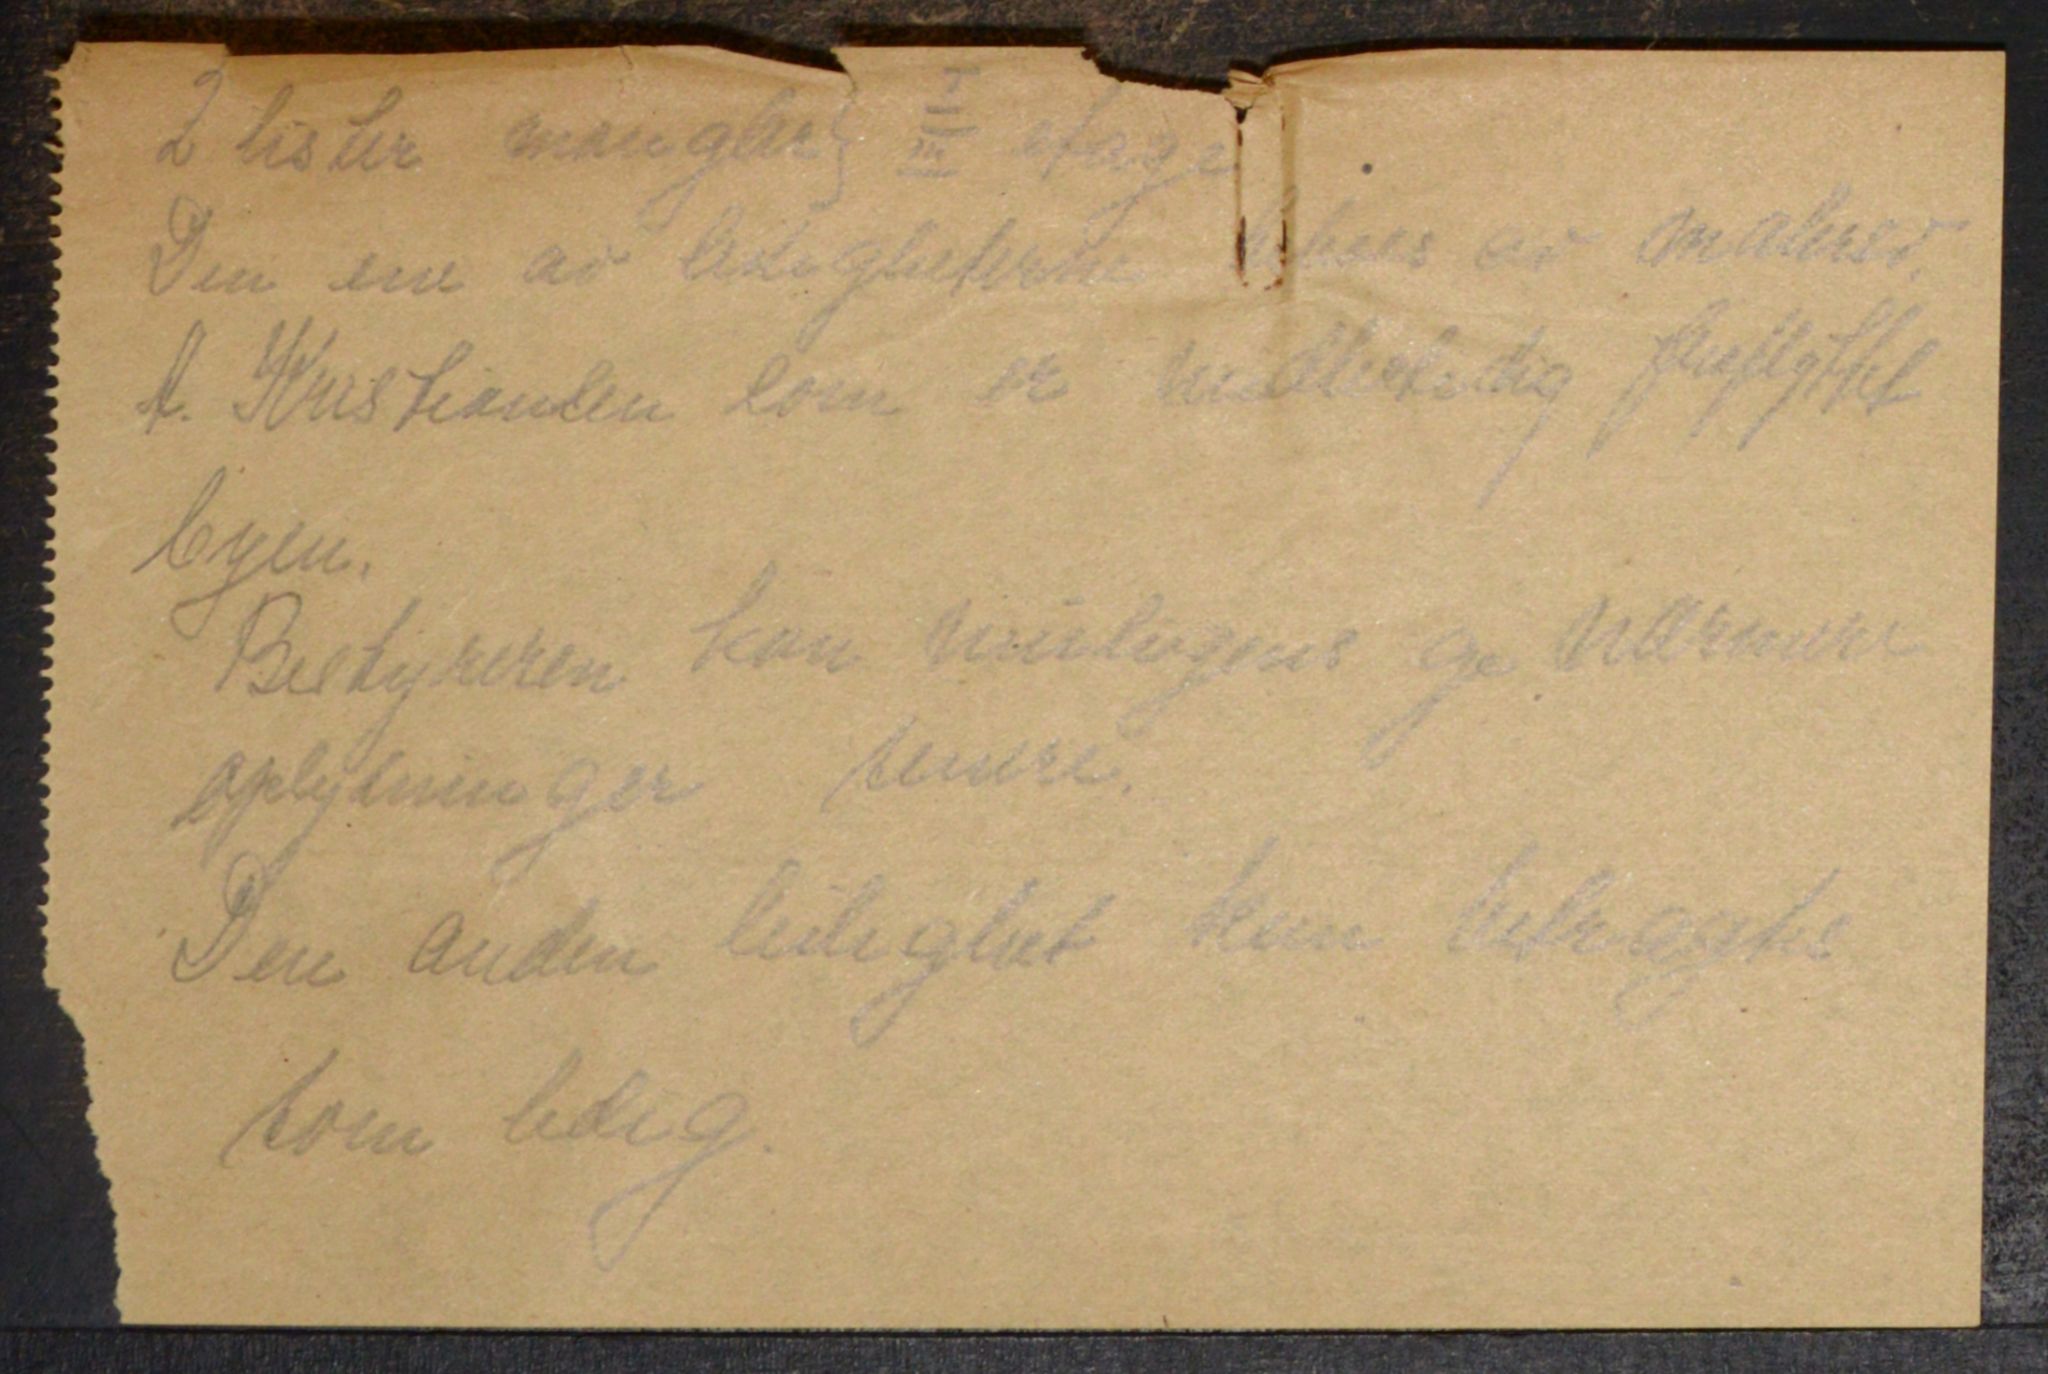 2 lister mangler } I III etage
Den ene av leiligheterne bebos av malersv.
A. Kristiansen som er midlertidig fraflyttet
byen.
Bestyreren kan muligens gi nærmere
oplysninger
Den anden leilighet kan betragtes
som ledig.